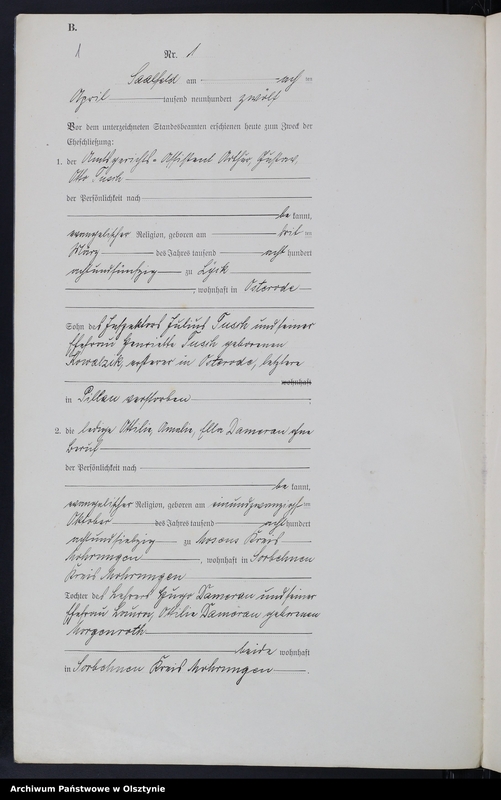 B.
1 Nr. 1
Saalfeld am acht ten
April tausend neunhundert zwölf
Vor dem unterzeichneten Standesbeamten erschienen heute zum Zweck der
Eheschließung:
1. der Amtsgerichts-Assistent Arthur, Gustav,
Otto Tusch
der Persönlichkeit nach
be kannt,
evangelischer Religion, geboren am drit ten
März des Jahres tausend acht hundert
achtundfünfzig zu Lyck
, wohnhaft in Osterode
Sohn des Inspektors Julius Tusch und seiner
Ehefrau Henriette Tusch geborenen
Kowalzik, ersterer in Osterode, letztere
wohnhaft
in Pillau verstorben .
2. die ledige Ottilie, Amalie, Ella Dameran ohne
Beruf
der Persönlichkeit nach
be kannt,
evangelischer Religion, geboren am einundzwanzigst ten
Oktober des Jahres tausend acht hundert
achtundsiebzig zu Mosens Kreis
Mohrungen , wohnhaft in Sorbehnen
Kreis Mohrungen
Tochter des Lehrers Hugo Dameran und seiner
Ehefrau Laura, Ottilie Dameran geborenen
Morgenroth
beide wohnhaft
in Sorbehnen Kreis Mohrungen .
Archiwum Państwowe w Olsztynie